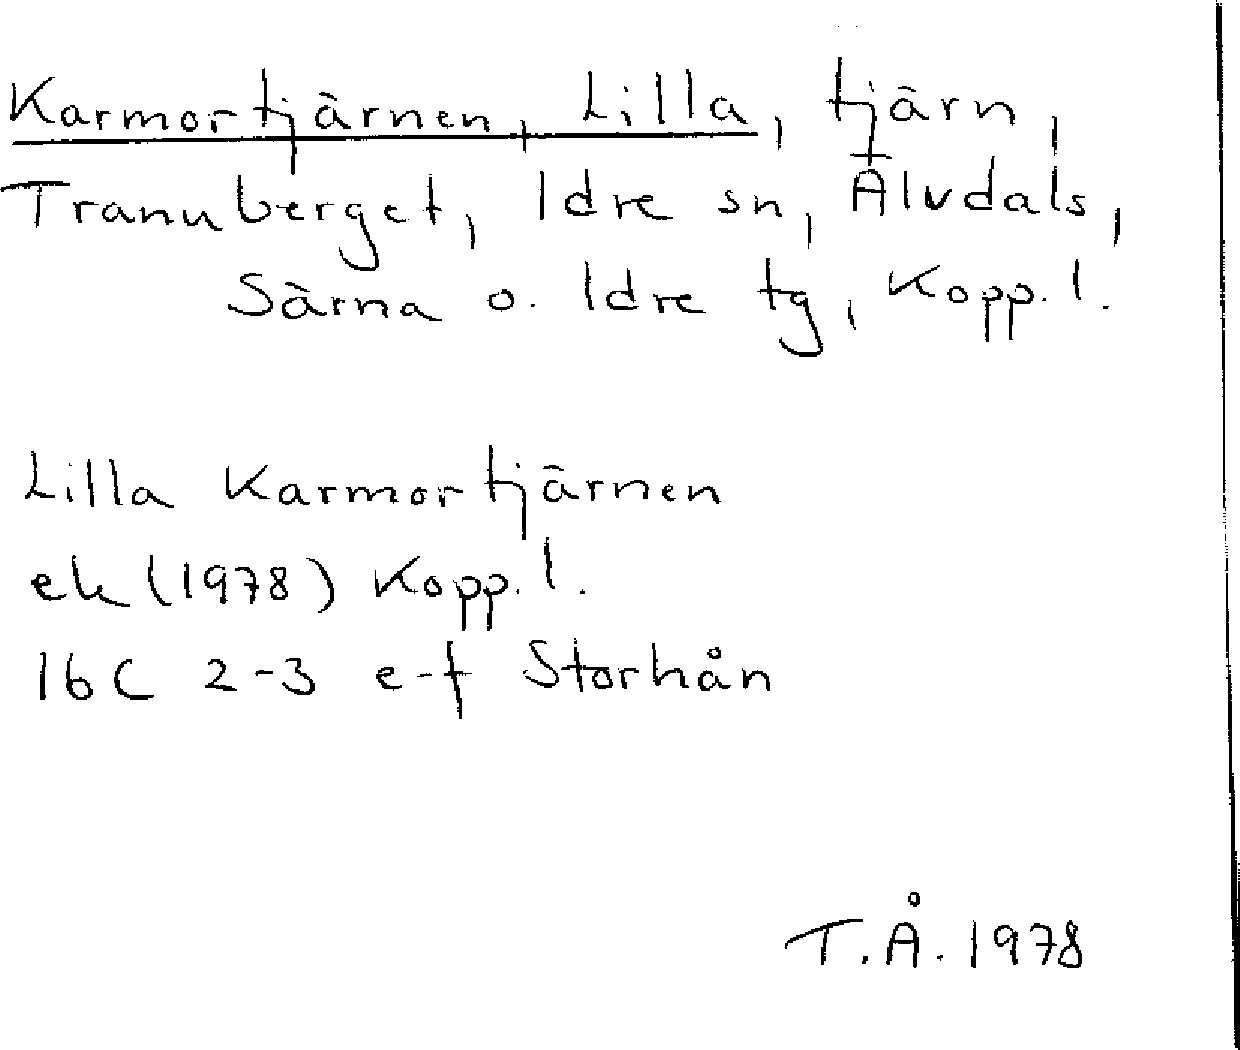 Karmortjärnen, Lilla, tjärn,
Tranuberget, Idre sn, Älvdals,
Särna o. Idre tg, Kopp. l.
Lilla Karmortjärnen
ek (1978) Kopp. l.
16C 2-3 e-f Storhån
T.Å. 1978